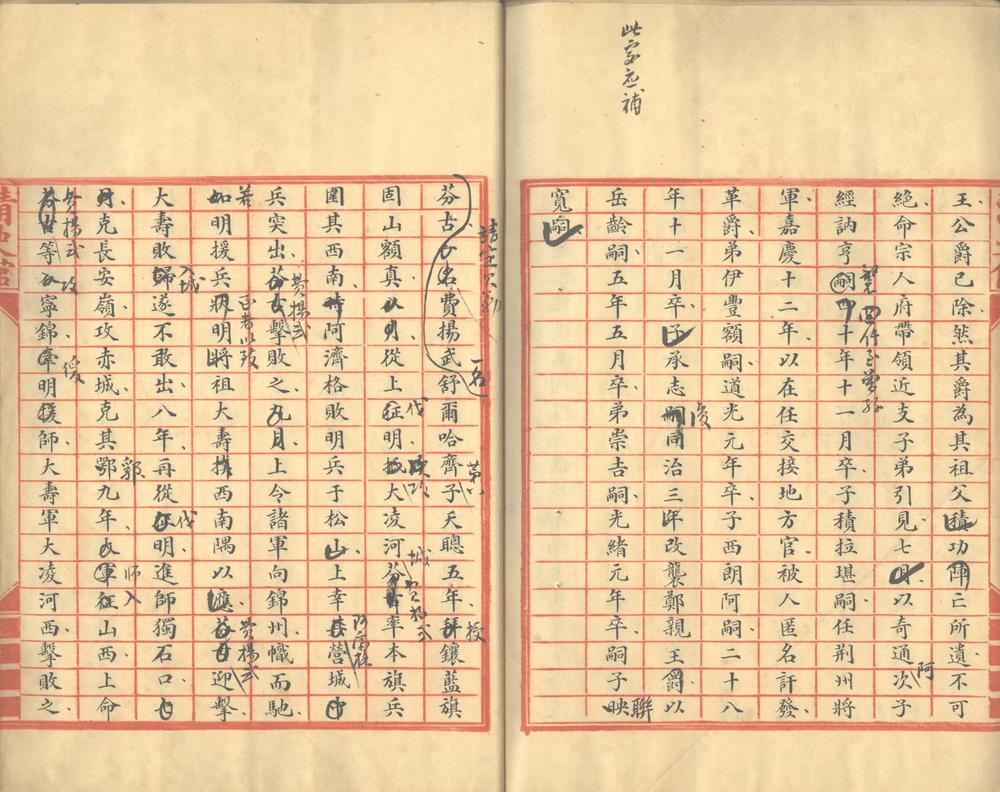 此家應補
王公爵已除然其爵為其祖父積功陣亡所遺不可
絕命宗人府帶領近支子弟引見七月以奇通阿次子
經訥亨嗣四十年十一月卒子積拉堪嗣任荊州將
軍嘉慶十二年以在任交接地方官被人匿名訐發
革爵弟伊豐額嗣道光元年卒子西朗阿嗣二十八
年十一月卒子承志嗣同治三年改襲鄭親王爵以
岳齡嗣五年五月卒弟崇吉嗣光緒元年卒嗣子映
聯
後
寬嗣
芬古
名費揚武舒爾哈齊子天聰五年拜鑲藍旗
一名
第八
授
固山額真
從上征明
大凌河芬古率本旗兵
伐
城
圍其西南
阿濟格敗明兵于松山上幸其營城
兵突出芬古擊敗之九月上令諸軍向錦州幟而馳
費揚武
如明援兵
明將祖大壽
西南隅以應芬古迎擊
費揚武
大壽敗歸遂不敢出八年再從征明進師獨石口
入城
伐
克長安嶺攻赤城克其鄂九年
軍征山西上命
郭
師入
芬古等
寧錦牽明援師大壽軍大凌河西擊敗之
費揚武
攻
清史館